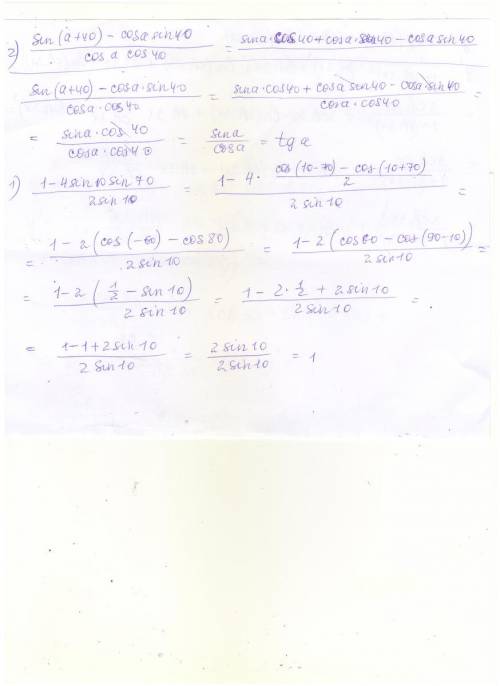 2) (sin(a+40) - cosa sin40)/(cos a cos 40) = sina·cos40+cosa·sin40 - cosa sin 40
(sin(a+40) - cosa·sin40)/(cosa·cos40) = (sina·cos40 + cosa sin40 - cosa·sin40)/(cosa·cos40) =
= (sina·cos 40)/(cosa·cos40) = sina/cosa = tg a
1) (1-4sin10sin70)/(2sin10) = (1- 4· (cos(10-70) - cos(10+70))/2)/(2sin10) =
= (1-2(cos(-60) - cos80))/(2sin10) = (1-2(cos60 - cos(90-10)))/(2sin10) =
= (1-2(1/2 - sin10))/(2sin10) = (1-2·1/2 + 2sin10)/(2sin10) =
= (1-1+2sin10)/(2sin10) = (2sin10)/(2sin10) = 1